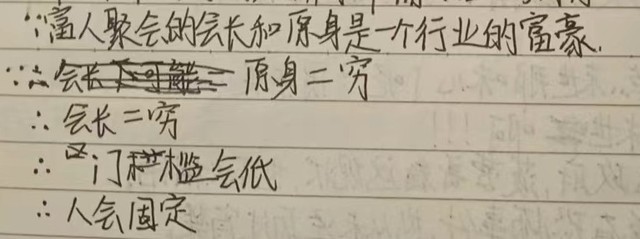 ∵富人聚会的会长和原身是一个行业的富豪.
∵原身=穷
∴会长=穷
∴门槛会低
∴人会固定